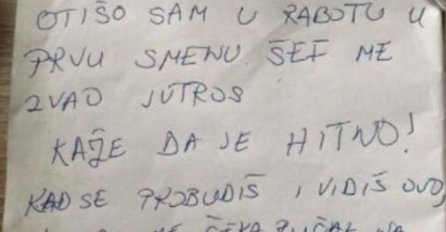 OTIŠO SAM U RABOTU U
PRVU SMENU ŠEF ME
ZVAO JUTROS
KAŽE DA JE HITNO!
KAD SE PROBUDIŠ I VIDIŠ OVO,
ČEKA RUČAK NA